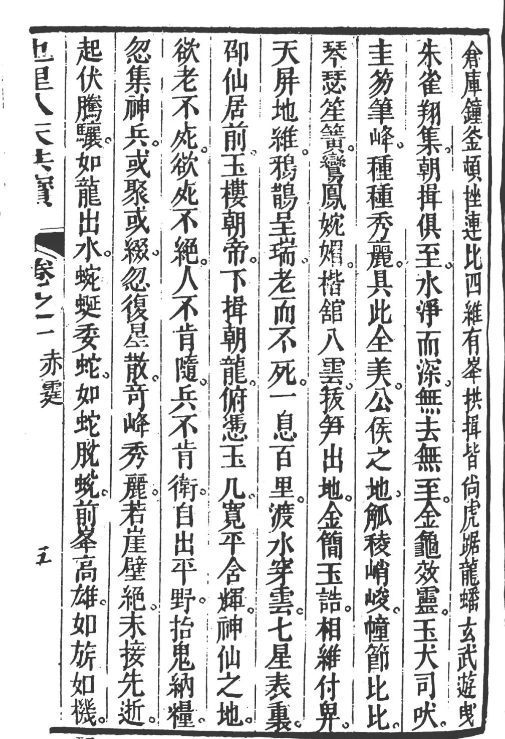 倉庫鐘釜頓挫連比四維有峯拱揖皆尙虎踞龍蟠玄武遊曳
朱雀翔集朝揖俱至水淨而深無去無至金龜效靈玉犬司吠
圭笏筆峰種種秀麗具此全美公侯之地觚稜峭峻幢節比比
琴瑟笙簧鸞鳳婉媚楷舘八雲拔笋出地金簡玉誥相維付畀
天屏地維鴉鵲呈瑞老而不死一息百里渡水穿雲七星表裏
卽仙居前玉樓朝帝下揖朝龍俯憑玉几寬平含輝神仙之地
欲老不死欲死不絕人不肯隨兵不肯衛自出平野抬鬼納糧
忽集神兵或聚或綴忽復星散奇峰秀麗若崖壁絕未接先逝
起伏騰驤如龍出水蜿蜒委蛇如蛇脫蛻前峯高雄如旂如機
地理人天共寶 卷之二 赤霆 五